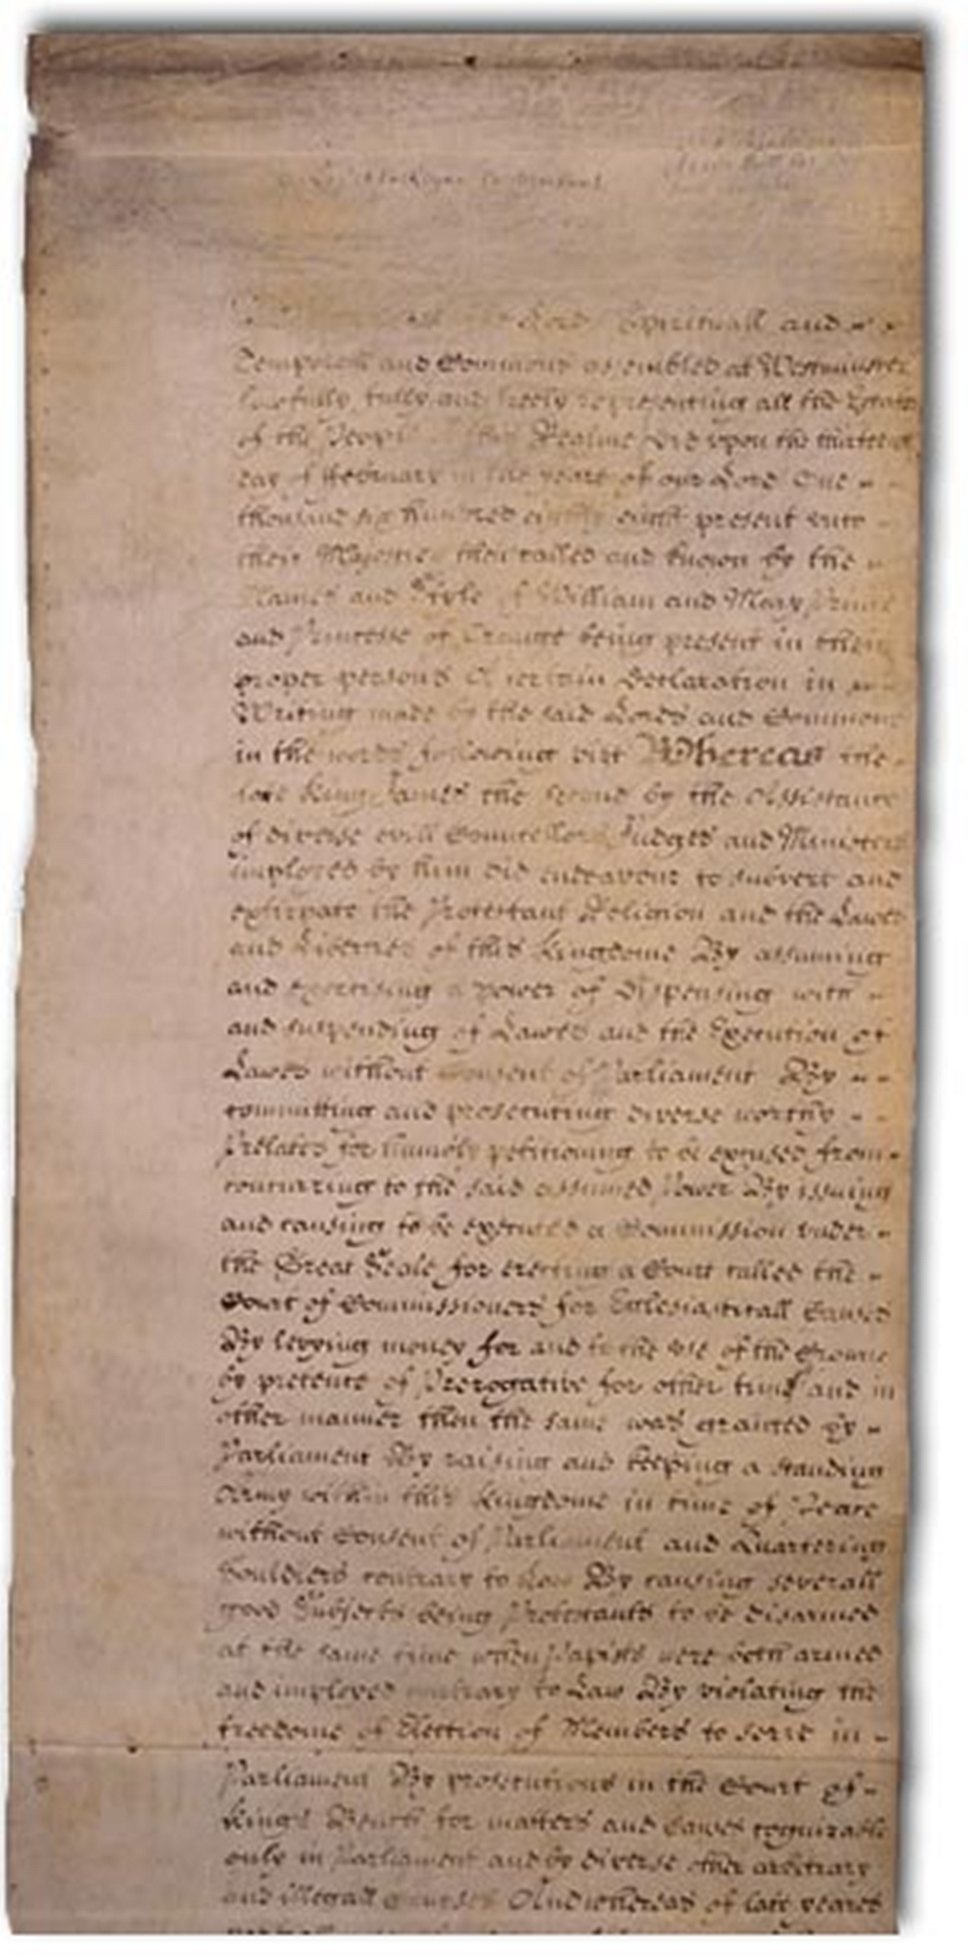 Lords Spirituall and
Temporall and Commons assembled at Westminster
lawfully fully and freely representing all the Estates
of the People of this Realme did upon the thirteenth
day of February in the yeare of our Lord One
thousand six hundred eighty eight present unto
their Majesties then called and known by the
Names and Style of William and Mary Prince
and Princesse of Orange being present in their
proper persons A certain Declaration in
Writing made by the said Lords and Commons
in the words following vizt Whereas the
late King James the Second by the Assistance
of diverse evill Councellors Judges and Ministers
imployed by him did endeavour to subvert and
extirpate the Protestant Religion and the Lawes
and Liberties of this Kingdome By assuming
and exercising a power of Dispensing with
and suspending of Lawes and the Execution of
Lawes without Consent of Parliament By
committing and prosecuting diverse worthy
Prelates for humbly petitioning to be excused from
concurring to the said assumed Power By issuing
and causing to be executed a Commission under
the Great Seale for erecting a Court called the
Court of Commissioners for Ecclesiasticall Causes
By levying money for and to the use of the Crowne
by pretence of Prerogative for other time and in
other manner then the same was granted by
Parliament By raising and keeping a standing
Army within this Kingdome in time of Peace
without Consent of Parliament and Quartering
Souldiers contrary to Law By causing severall
good Subjects being Protestants to be disarmed
at the same time when Papists were both armed
and imployed contrary to Law By violating the
freedome of Election of Members to serve in
Parliament By prosecutions in the Court of
Kings Bench for matters and Causes cognizable
only in Parliament and by diverse other arbitrary
and illegall courses And whereas of late yeares